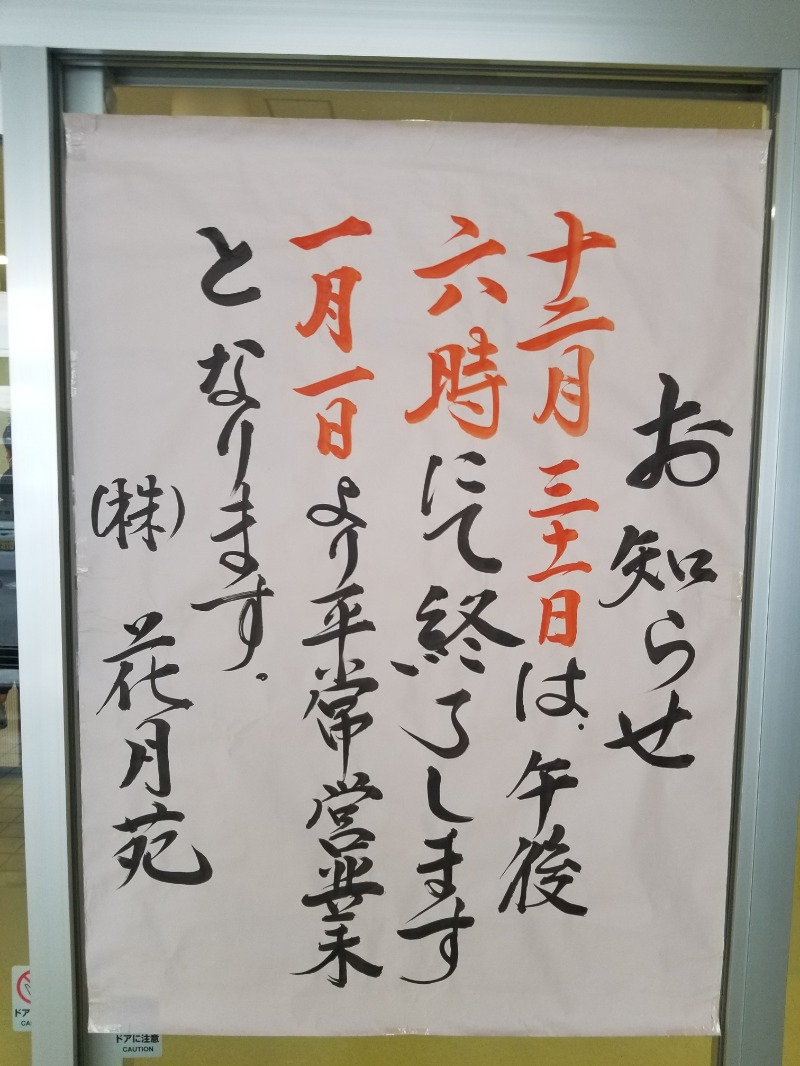 お知らせ
十二月三十一日は、午後
六時にて終了します
一月一日より平常営業
となります。
(株) 花月苑
ドアに注意
CAUTION